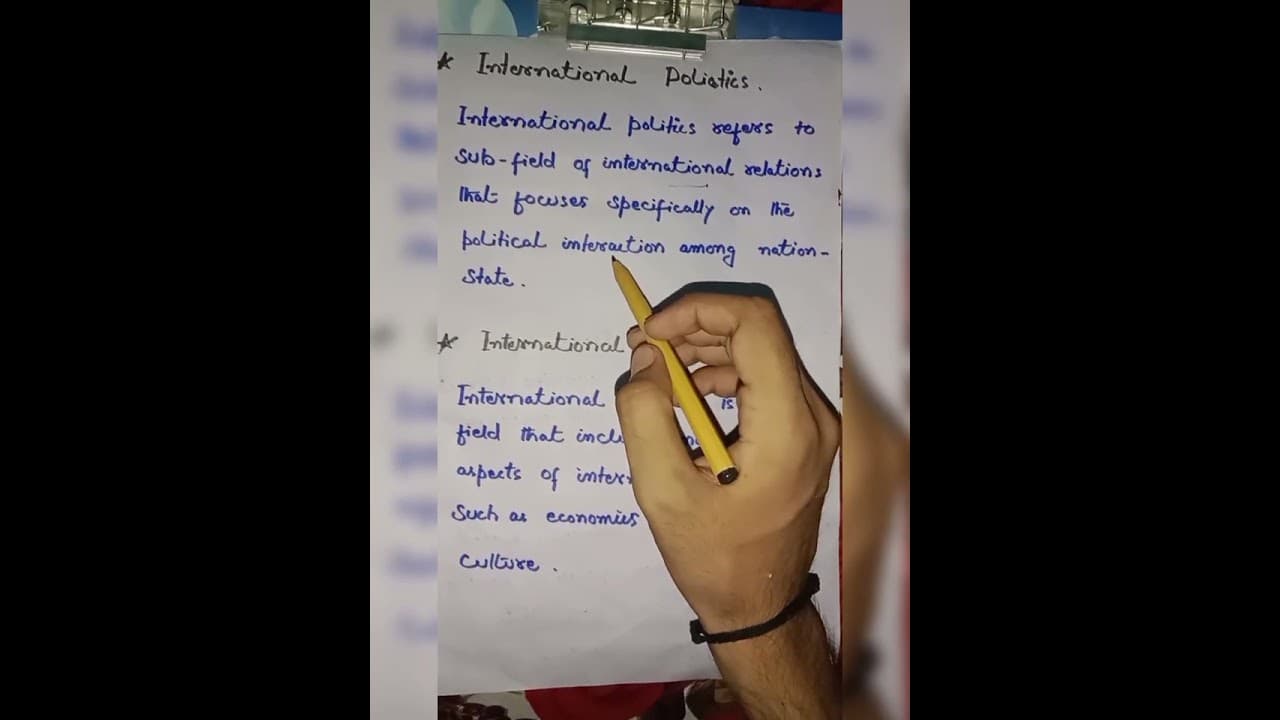 * International Poliatics.
International politics refers to
sub-field of international relations
that focuses specifically on the
political interaction among nation-
state.
* International
International is
field that
aspects of
Such as economics
culture.